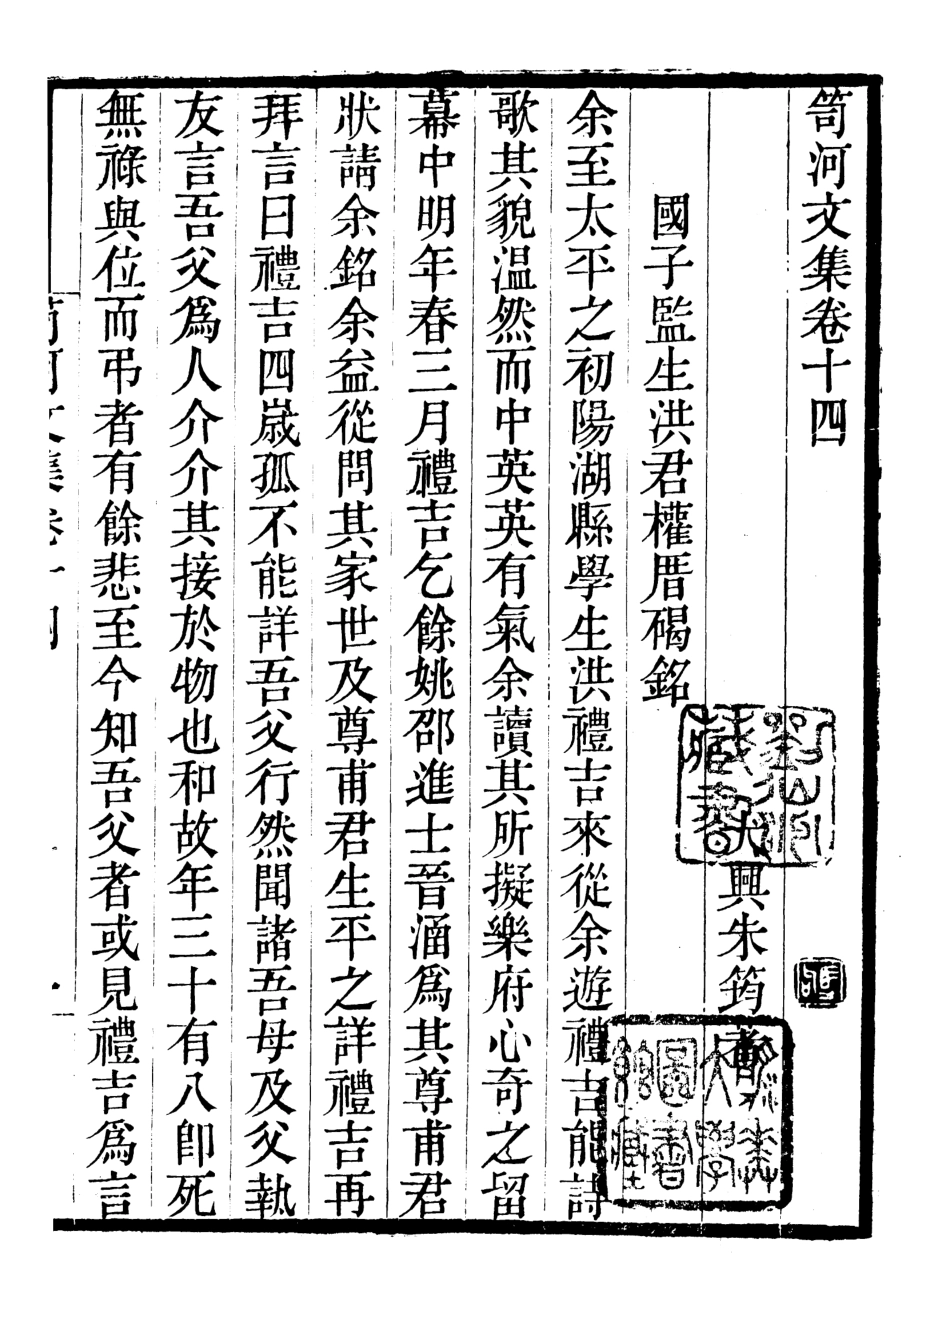 笥河文集卷十四
大興朱筠著
國子監生洪君權厝碣銘
余至太平之初陽湖縣學生洪禮吉來從余遊禮吉能詩
歌其貌温然而中英英有氣余讀其所擬樂府心奇之留
幕中明年春三月禮吉乞餘姚邵進士晉涵爲其尊甫君
狀請余銘余益從問其家世及尊甫君生平之詳禮吉再
拜言曰禮吉四歲孤不能詳吾父行然聞諸吾母及父執
友言吾父爲人介介其接於物也和故年三十有八卽死
無祿與位而弔者有餘悲至今知吾父者或見禮吉爲言
笥河文集卷十四
一
藏書
大學
圖書
館藏